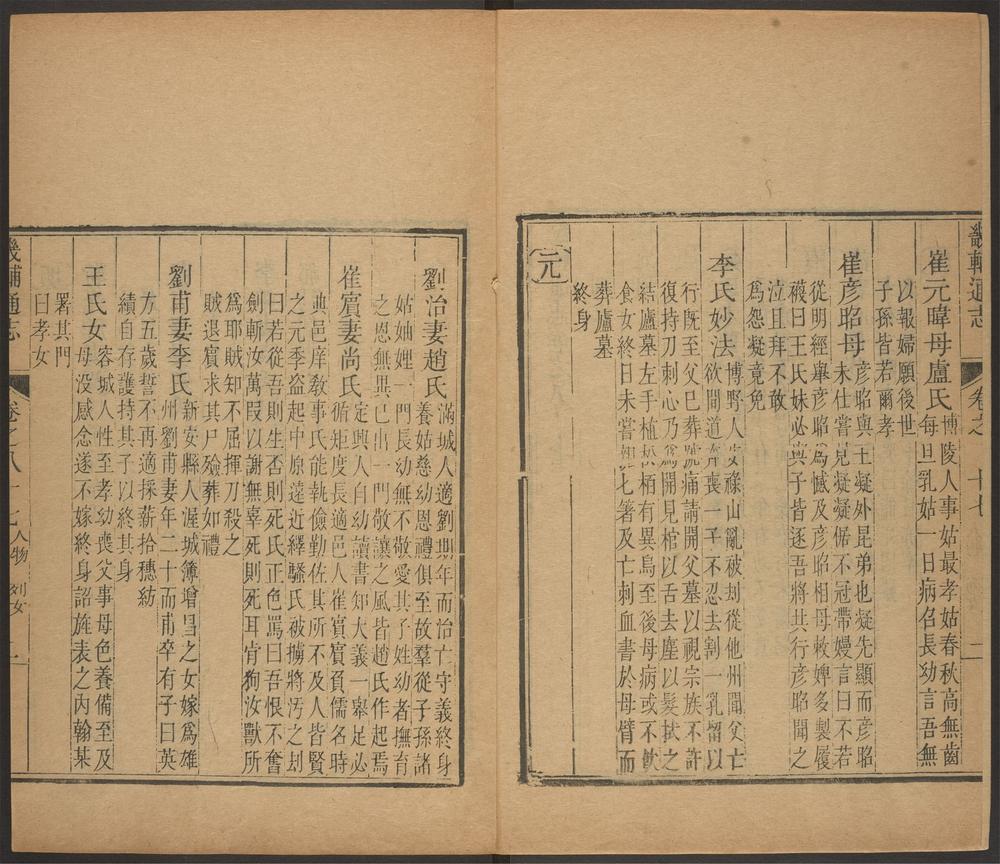 畿輔通志
卷之
崔元暐母盧氏
博陵人事姑最孝姑春秋高無齒
每旦乳姑一日病召長幼言吾無
以報婦願後世
子孫皆若爾孝
崔彥昭母
彥昭與王凝外昆弟也凝先顯而彥昭
未仕嘗見凝凝倨不冠帶嫚言曰不若
從明經舉彥昭為憾及彥昭相母敕婢多製履
襪曰王氏妹必與子皆逐吾將共行彥昭聞之
泣且拜不敢
為怨凝竟免
李氏妙法
博野人安祿山亂被刦從他州聞父亡
欲間道奔喪一子不忍去割一乳留以
行旣至父已葬號痛請開父墓以視宗族不許
復持刀刺心乃為開見棺以舌去塵以髮拭之
結廬墓左手植松栢有異鳥至後母病或不飲
食女終日未嘗視匕箸及亡刺血書於母臂而
葬廬墓
終身
元
劉治妻趙氏
滿城人適劉期年而治亡守義終身
養姑慈幼恩禮俱至故羣從子孫諸
姑妯娌一門長幼無不敬愛其子姓幼者撫育
之恩無異已出一門敬讓之風皆趙氏作起焉
崔賓妻尚氏
定興人自幼讀書知大義一舉足必
循矩度長適邑人崔賓賓負儒名時
典邑庠敎事氏能執儉勤佐其所不及人皆賢
之元季盜起中原遠近繹騷氏被擄將汚之刦
曰若從吾則生否則死氏正色罵曰吾恨不奮
劍斬汝萬叚以謝無辜死則死耳肯狗汝獸所
為耶賊知不屈揮刀殺之
賊退賓求其尸殮葬如禮
劉甫妻李氏
新安縣人渥城簿增昌之女嫁為雄
州劉甫妻年二十而甫卒有子曰英
方五歲誓不再適採薪拾穗紡
績自存護持其子以終其身
王氏女
容城人性至孝幼喪父事母色養備至及
母没感念遂不嫁終身詔旌表之內翰某
署其門
曰孝女
畿輔通志
卷之八十七
人物
列女